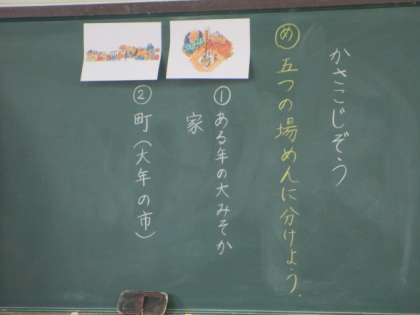 かさこじぞう
め 五つの場めんに分けよう.
① ある年の大みそか
家
② 町(大年の市)